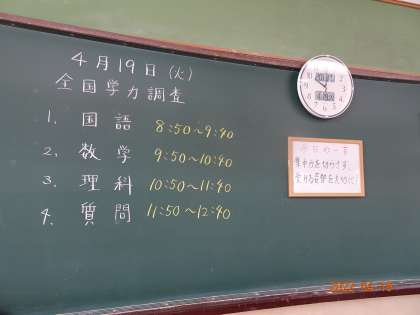 4月19日(火)
全国学力調査
1. 国語 8:50〜9:40
2. 数学 9:50〜10:40
3. 理科 10:50〜11:40
4. 質問 11:50〜12:40
今日の一言
集中力を切らさず、